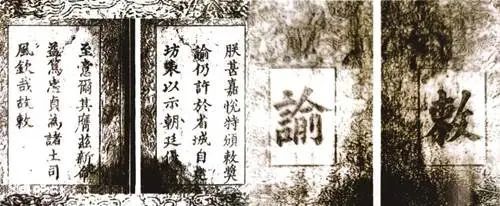 敕
諭
朕甚嘉悅特頒敕獎
諭仍許於省城自建
坊表以示朝廷優
至意爾其膺茲新命
益篤忠貞為諸土司
風欽哉故敕